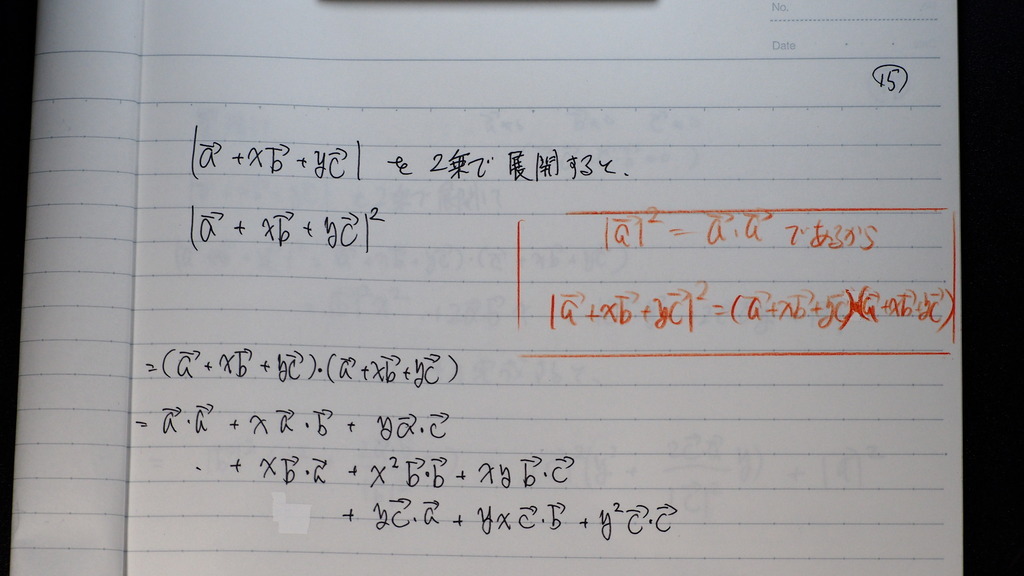 No.
Date
(15)
|a⃗ + xb⃗ + yc⃗| を 2乗で 展開すると.
|a⃗ + xb⃗ + yc⃗|²
|a⃗|² = a⃗・a⃗ であるから
|a⃗ + xb⃗ + yc⃗|² = (a⃗ + xb⃗ + yc⃗)・(a⃗ + xb⃗ + yc⃗)
= (a⃗ + xb⃗ + yc⃗)・(a⃗ + xb⃗ + yc⃗)
= a⃗・a⃗ + x a⃗・b⃗ + y a⃗・c⃗
+ x b⃗・a⃗ + x² b⃗・b⃗ + xy b⃗・c⃗
+ y c⃗・a⃗ + yx c⃗・b⃗ + y² c⃗・c⃗